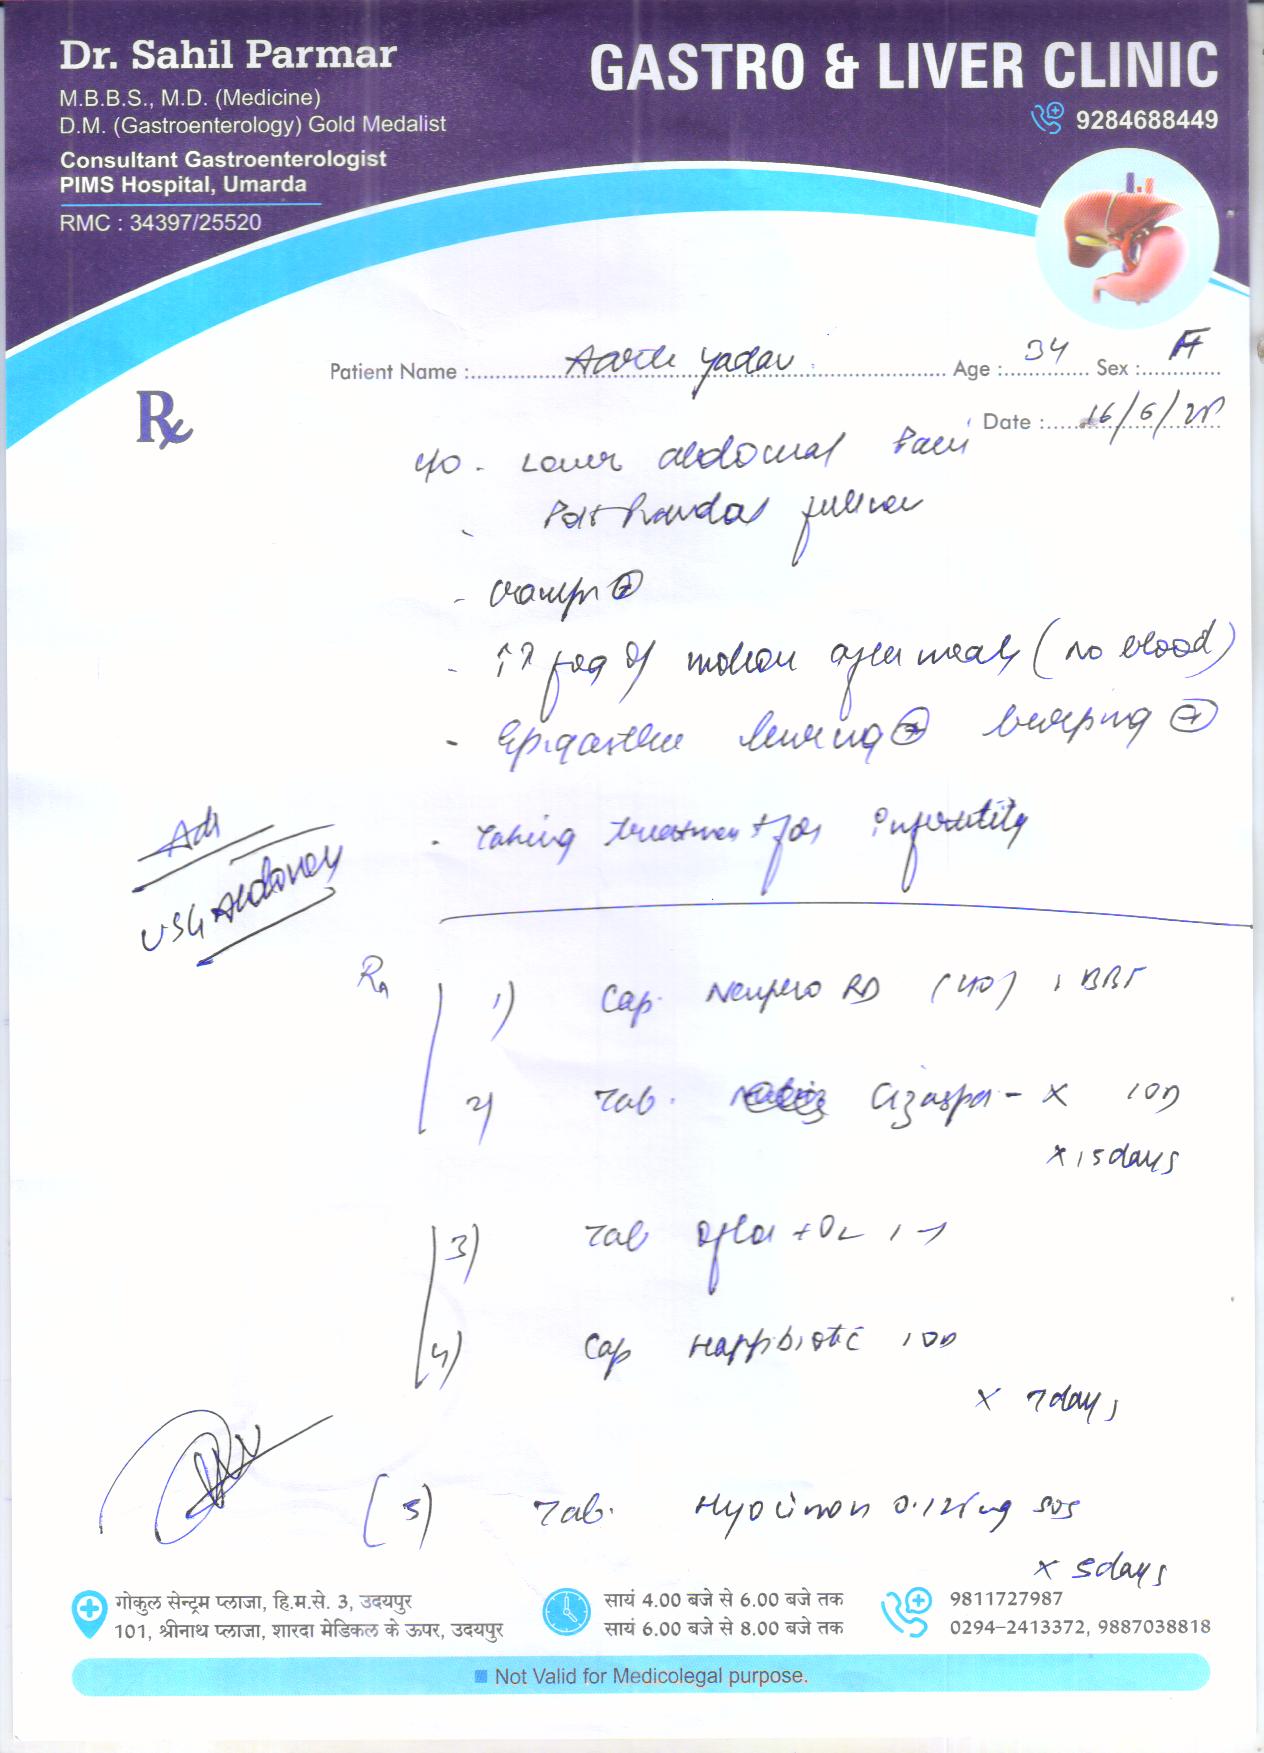 Dr. Sahil Parmar
M.B.B.S., M.D. (Medicine)
D.M. (Gastroenterology) Gold Medalist
Consultant Gastroenterologist
PIMS Hospital, Umarda
RMC : 34397/25520
GASTRO & LIVER CLINIC
9284688449
Patient Name : Yadav Age : 34 Sex : F
Rx
Date : 16/6/
c/o - Lower abdominal Pain
- Post Prandial fullness
- cramps +
- ↑↑ freq of motion after meals (no blood)
- Epigastric burning + burping +
- Taking treatment for infertility
Adv
USG Abdomen
Rx
1) Cap. RD (40) 1 BBF
2) Tab. - X 1OD
x 15 days
3) Tab Oflox + OZ 1-1
4) Cap Happbiotic 1OD
x 7 days
5) Tab. Hyocimon 0.125mg SOS
x 5 days
गोकुल सेन्ट्रम प्लाजा, हि.म.से. 3, उदयपुर
101, श्रीनाथ प्लाजा, शारदा मेडिकल के ऊपर, उदयपुर
सायं 4.00 बजे से 6.00 बजे तक
सायं 6.00 बजे से 8.00 बजे तक
9811727987
0294-2413372, 9887038818
Not Valid for Medicolegal purpose.